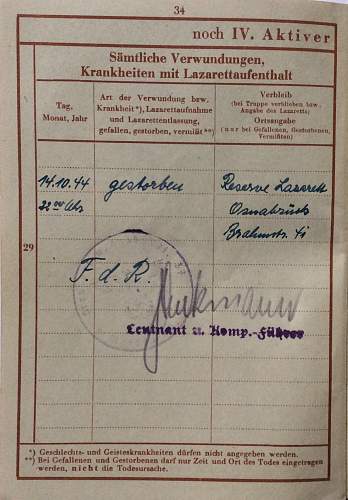 34
noch IV. Aktiver
Sämtliche Verwundungen,
Krankheiten mit Lazarettaufenthalt
Tag,
Monat, Jahr
Art der Verwundung bzw.
Krankheit*), Lazarettaufnahme
und Lazarettentlassung,
gefallen, gestorben, vermißt**)
Verbleib
(bei Truppe verblieben bzw.
Angabe des Lazaretts)
Ortsangabe
(nur bei Gefallenen, Gestorbenen,
Vermißten)
14.10.44 gestorben Reserve Lazarett
22 00 Uhr Osnabrück
29
F. d. R.
Leutnant u. Komp.-Führer
*) Geschlechts- und Geisteskrankheiten dürfen nicht angegeben werden.
**) Bei Gefallenen und Gestorbenen darf nur Zeit und Ort des Todes eingetragen
werden, nicht die Todesursache.